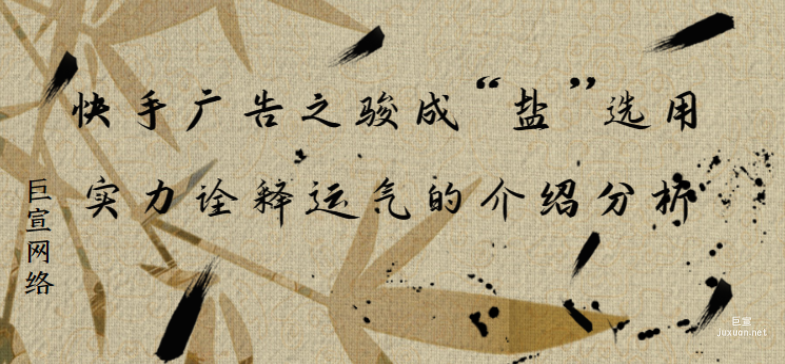 快手广告之骏成“盐”选用
实力诠释运气的介绍分析
巨宣网络
巨宣
juxuan.net